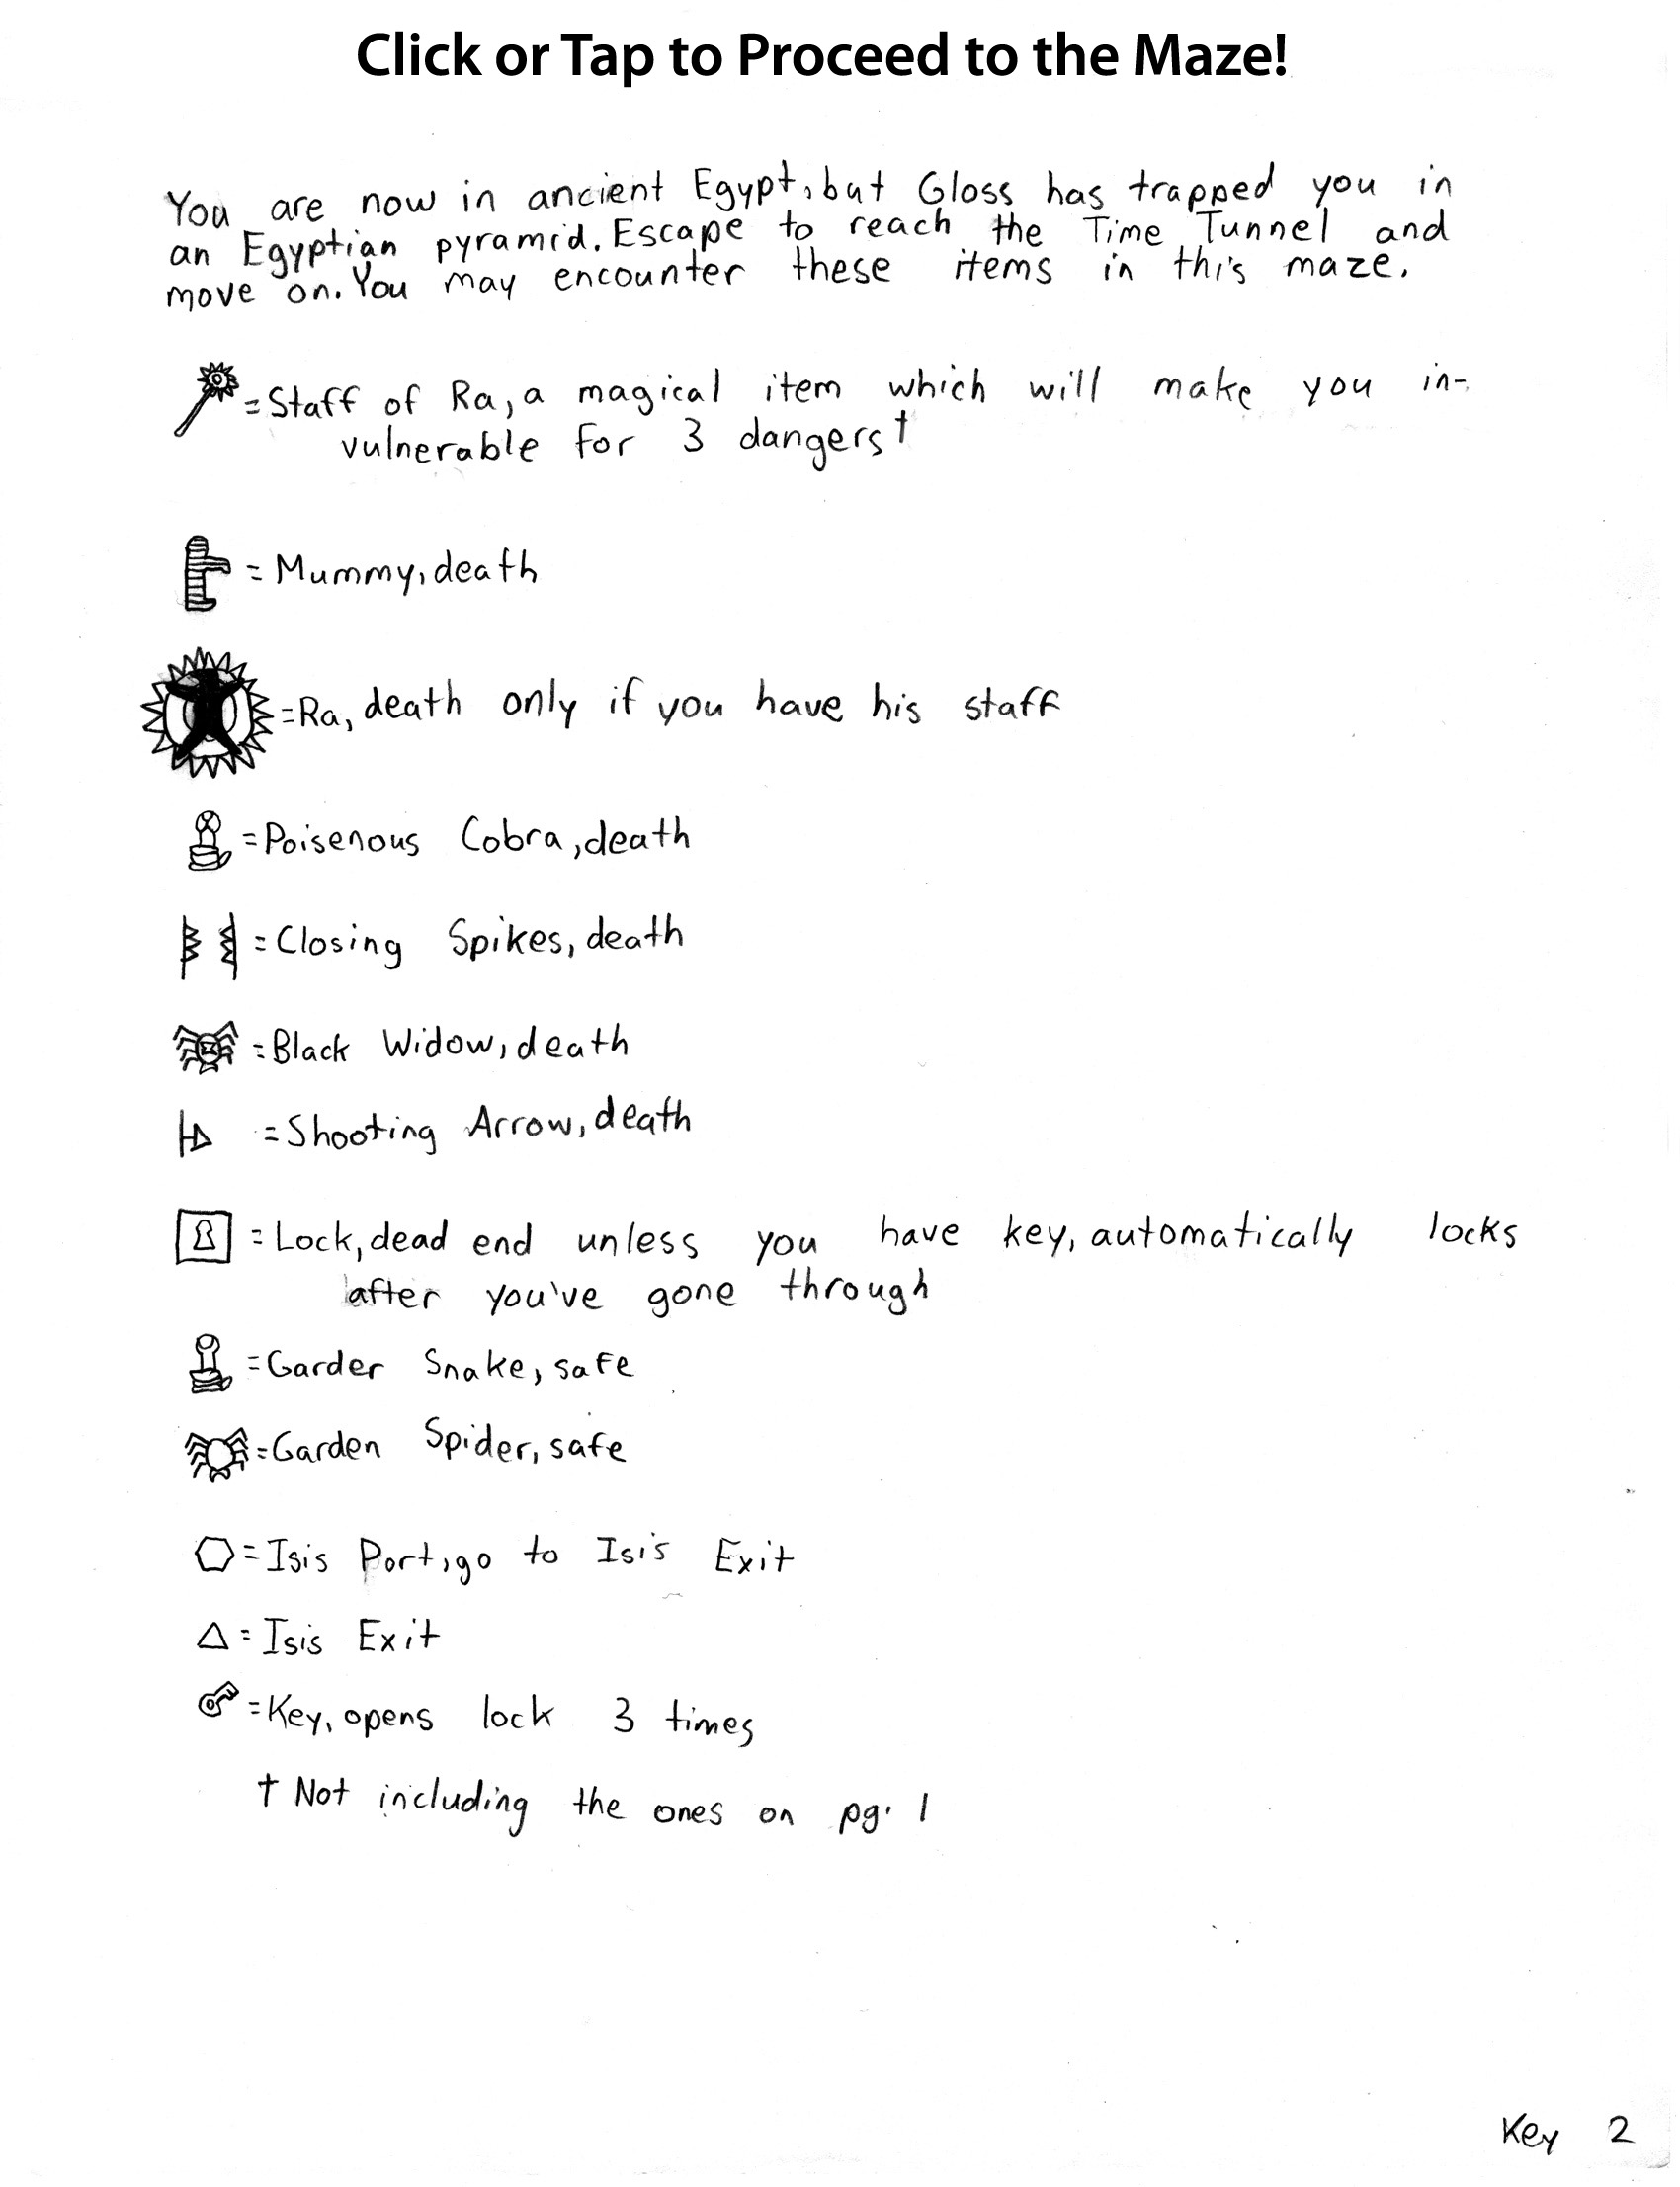 Click or Tap to Proceed to the Maze!
You are now in ancient Egypt, but Gloss has trapped you in
an Egyptian pyramid. Escape to reach the Time Tunnel and
move on. You may encounter these items in this maze.
= Staff of Ra, a magical item which will make you in-
vulnerable for 3 dangers†
= Mummy, death
= Ra, death only if you have his staff
= Poisenous Cobra, death
= Closing Spikes, death
= Black Widow, death
= Shooting Arrow, death
= Lock, dead end unless you have key, automatically locks
after you've gone through
= Garder Snake, safe
= Garden Spider, safe
= Isis Port, go to Isis Exit
= Isis Exit
= Key, opens lock 3 times
† Not including the ones on pg. 1
Key 2